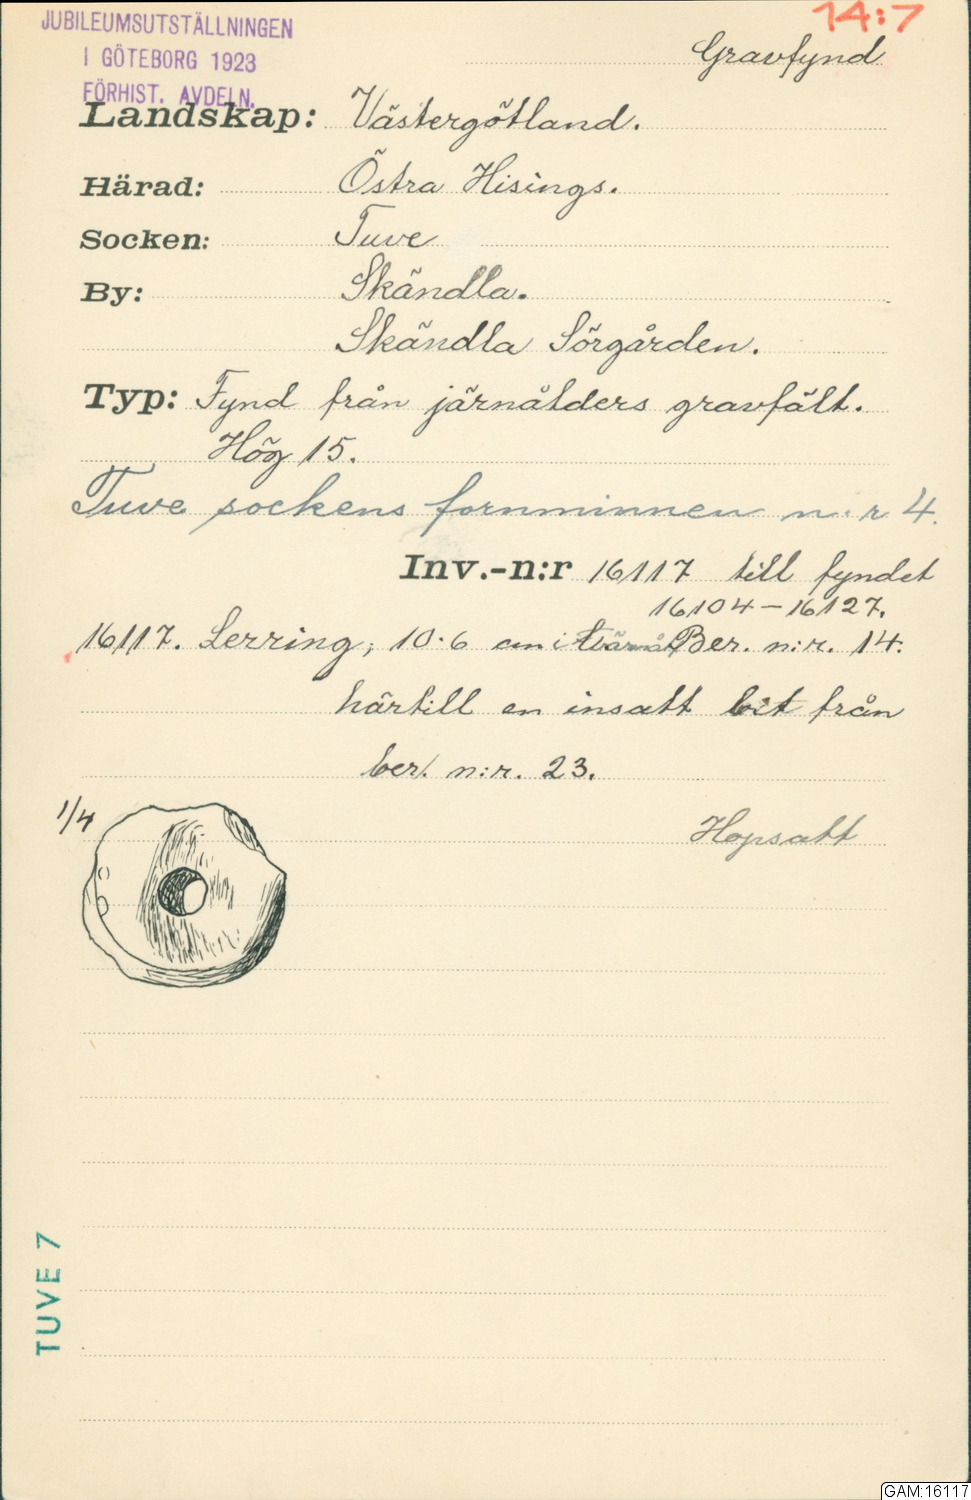 JUBILEUMSUTSTÄLLNINGEN
I GÖTEBORG 1923
FÖRHIST. AVDELN.
14:7
Gravfynd
Landskap: Västergötland.
Härad: Östra Hisings.
Socken: Tuve
By: Skändla.
Skändla Sörgården.
Typ: Fynd från järnålders gravfält.
Hög 15.
Tuve sockens fornminnen n:r 4.
Inv.-n:r 16117 till fyndet
16104-16127.
16117. Lerring; 10.6 cm i tvärmåt Ber. n:r. 14.
härtill en insatt bit från
ber. n:r. 23.
1/4
Hopsatt
TUVE 7
GAM:16117